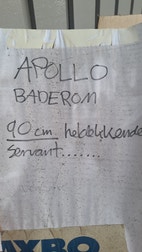 APOLLO
BADEROM
90 cm heldekkende
Servant.......
AXBO